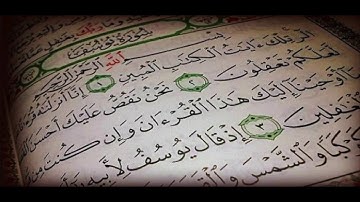 سُورَةُ يُوسُفَ
بِسْمِ ٱللَّهِ ٱلرَّحْمَٰنِ
الٓر تِلْكَ ءَايَٰتُ ٱلْكِتَٰبِ ٱلْمُبِينِ ١ إِنَّآ أَنزَلْنَٰهُ
لَّعَلَّكُمْ تَعْقِلُونَ ٢ نَحْنُ نَقُصُّ عَلَيْكَ أَحْسَنَ
أَوْحَيْنَآ إِلَيْكَ هَٰذَا ٱلْقُرْءَانَ وَإِن كُنتَ مِن
ٱلْغَٰفِلِينَ ٣ إِذْ قَالَ يُوسُفُ لِأَبِيهِ
كَوْكَبًا وَٱلشَّمْسَ